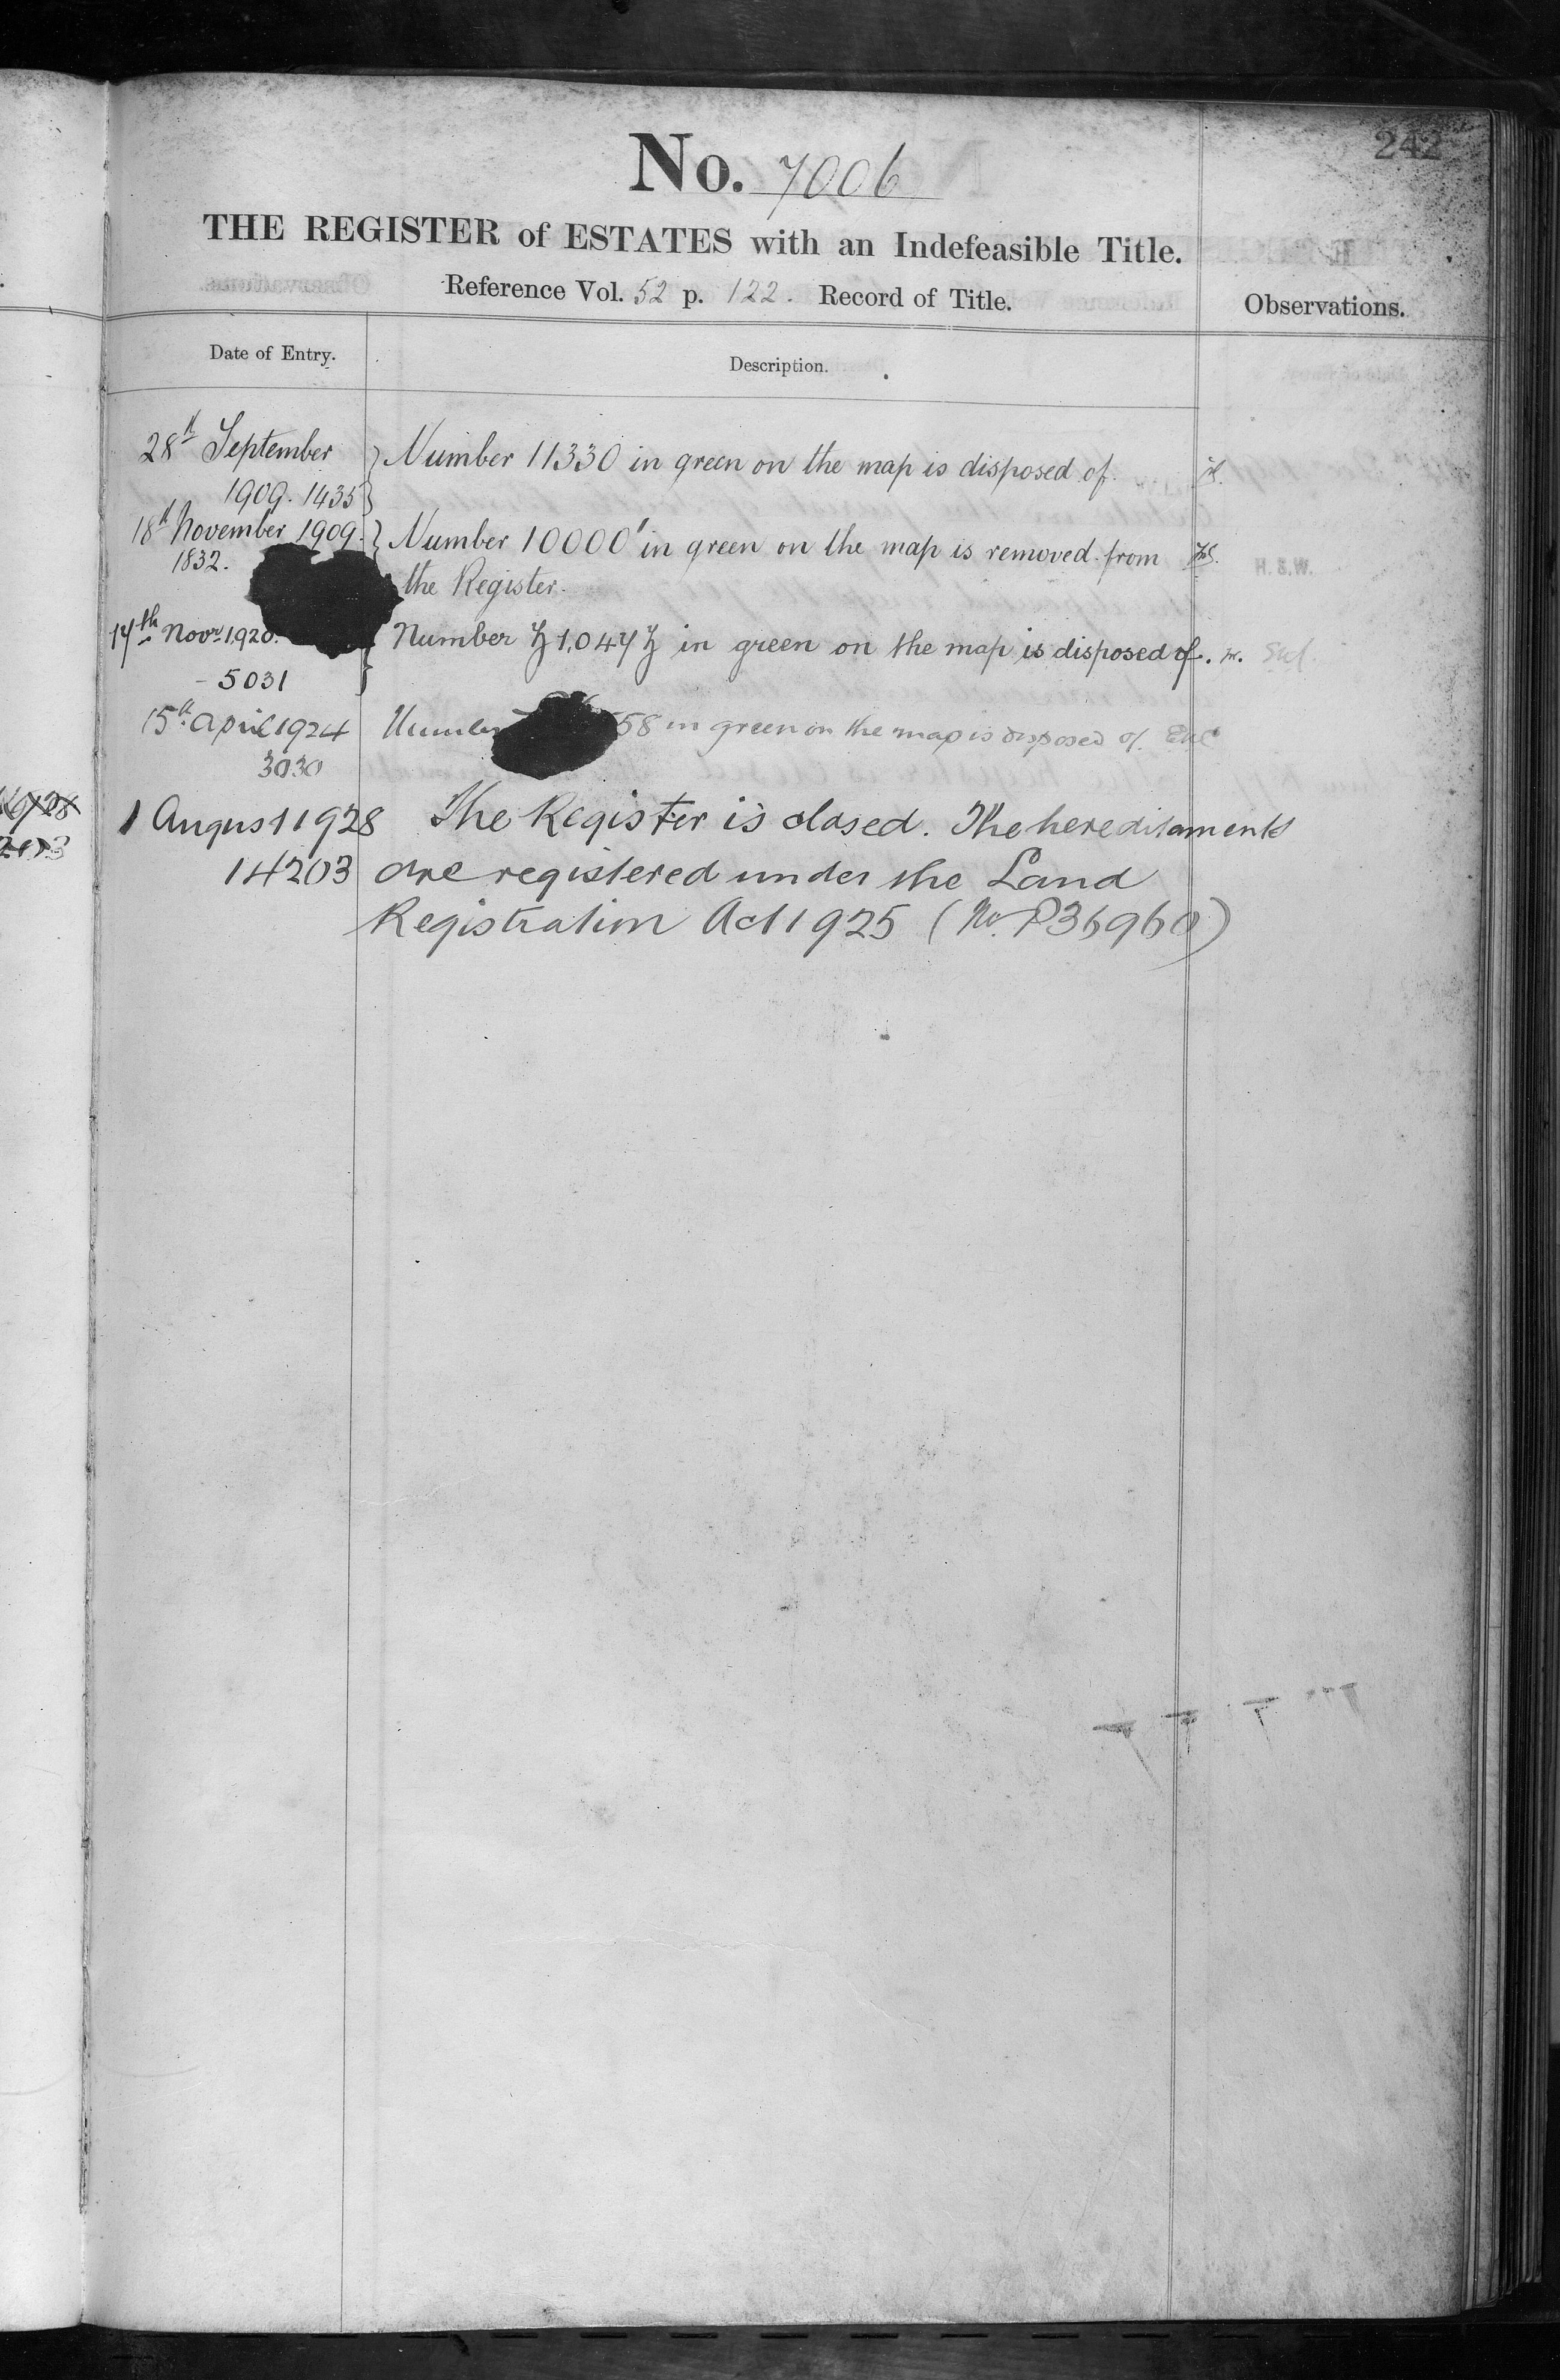 242
No. 7006
THE REGISTER of ESTATES with an Indefeasible Title.
Reference Vol. 52 p. 122. Record of Title.
Observations.
Date of Entry.
Description.
28th September Number 11330 in green on the map is disposed of.
1909. 1435
18th November 1909. Number 10000' in green on the map is removed from
H. S. W.
1832. the Register.
Novr 1920. Number in green on the map is disposed of.
5031
15th April 1924 58 in green on the map is disposed of.
3030
1 August 1928 The Register is closed. The hereditaments
14203 are registered under the Land
Registration Act 1925 (No. P36960)